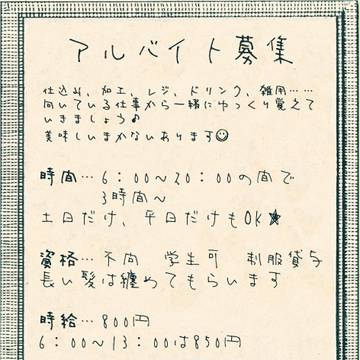 アルバイト募集
仕込み、加工、レジ、ドリンク、雑用……
向いている仕事から一緒にゆっくり覚えて
いきましょう♪
美味しいまかないあります☺
時間…6：00〜20：00の間で
3時間〜
土日だけ、平日だけもOK★
資格…不問 学生可 制服貸与
長い髪は纏めてもらいます
時給…800円
6：00〜13：00は850円